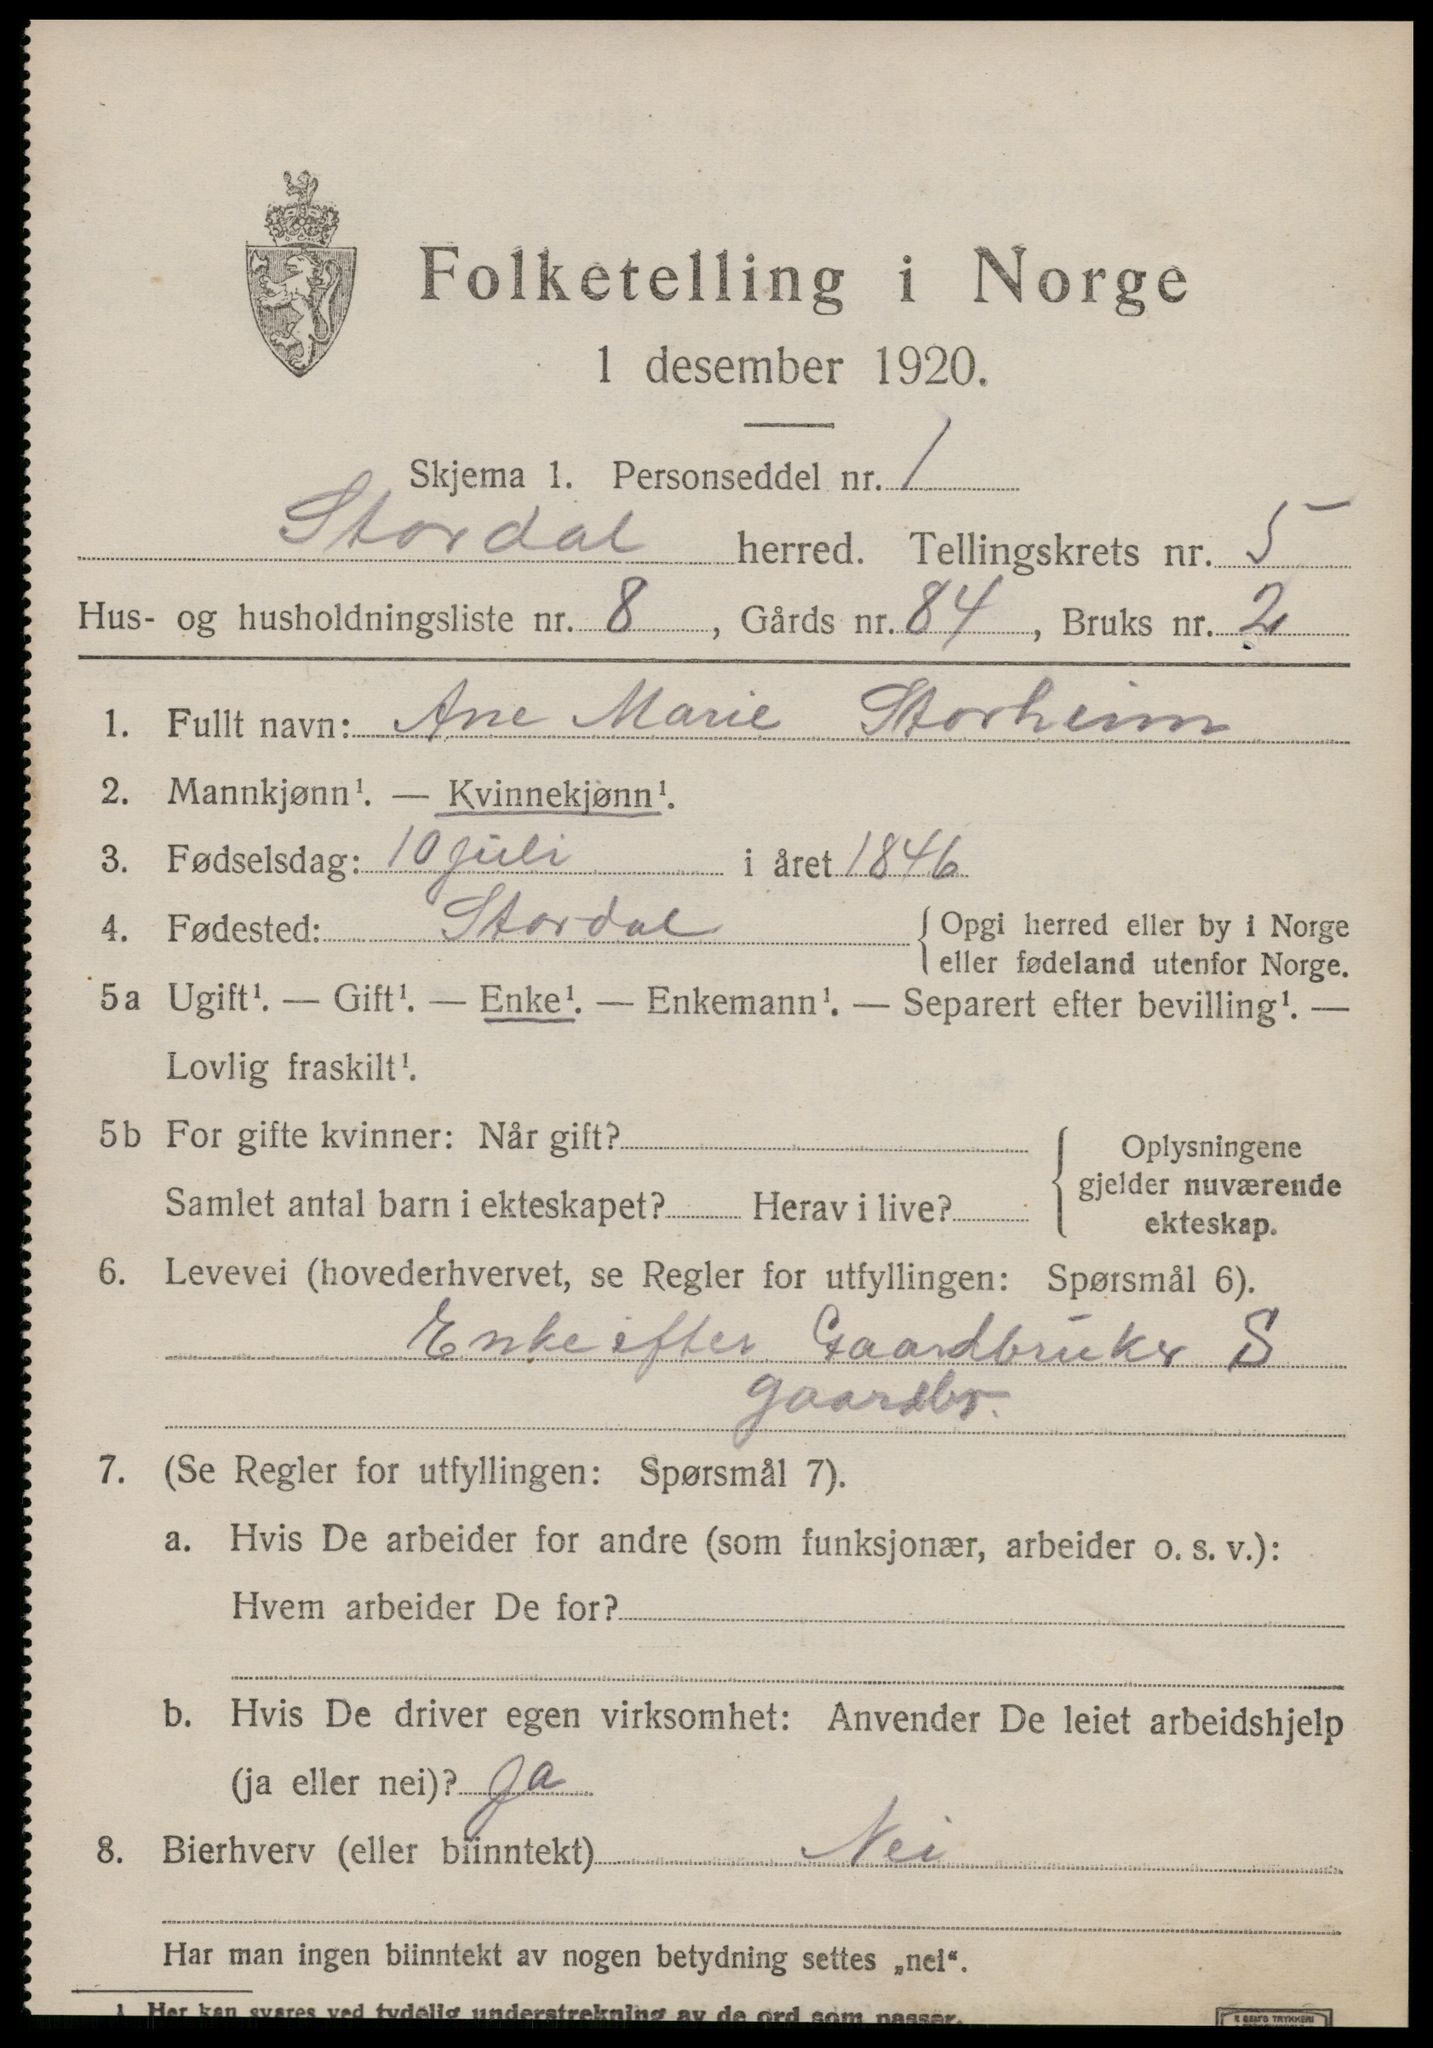 Folketelling i Norge
1 desember 1920.
Skjema 1. Personseddel nr. 1
Stordal herred. Tellingskrets nr. 5
Hus- og husholdningsliste nr. 8, Gårds nr. 84, Bruks nr. 2
1. Fullt navn: Ane Marie Storheim
2. Mannkjønn¹. — Kvinnekjønn¹.
3. Fødselsdag: 10 juli i året 1846
4. Fødested: Stordal { Opgi herred eller by i Norge
eller fødeland utenfor Norge.
5a Ugift¹. — Gift¹. — Enke¹. — Enkemann¹. — Separert efter bevilling¹. —
Lovlig fraskilt¹.
5b For gifte kvinner: Når gift?
Samlet antal barn i ekteskapet? Herav i live?
Oplysningene
gjelder nuværende
ekteskap.
6. Levevei (hovederhvervet, se Regler for utfyllingen: Spørsmål 6).
Enke efter Gaardbruker S
gaardbr.
7. (Se Regler for utfyllingen: Spørsmål 7).
a. Hvis De arbeider for andre (som funksjonær, arbeider o. s. v.):
Hvem arbeider De for?
b. Hvis De driver egen virksomhet: Anvender De leiet arbeidshjelp
(ja eller nei)? Ja
8. Bierhverv (eller biinntekt) Nei
Har man ingen biinntekt av nogen betydning settes „nei“.
1. Her kan svares ved tydelig understrekning av de ord som passer.